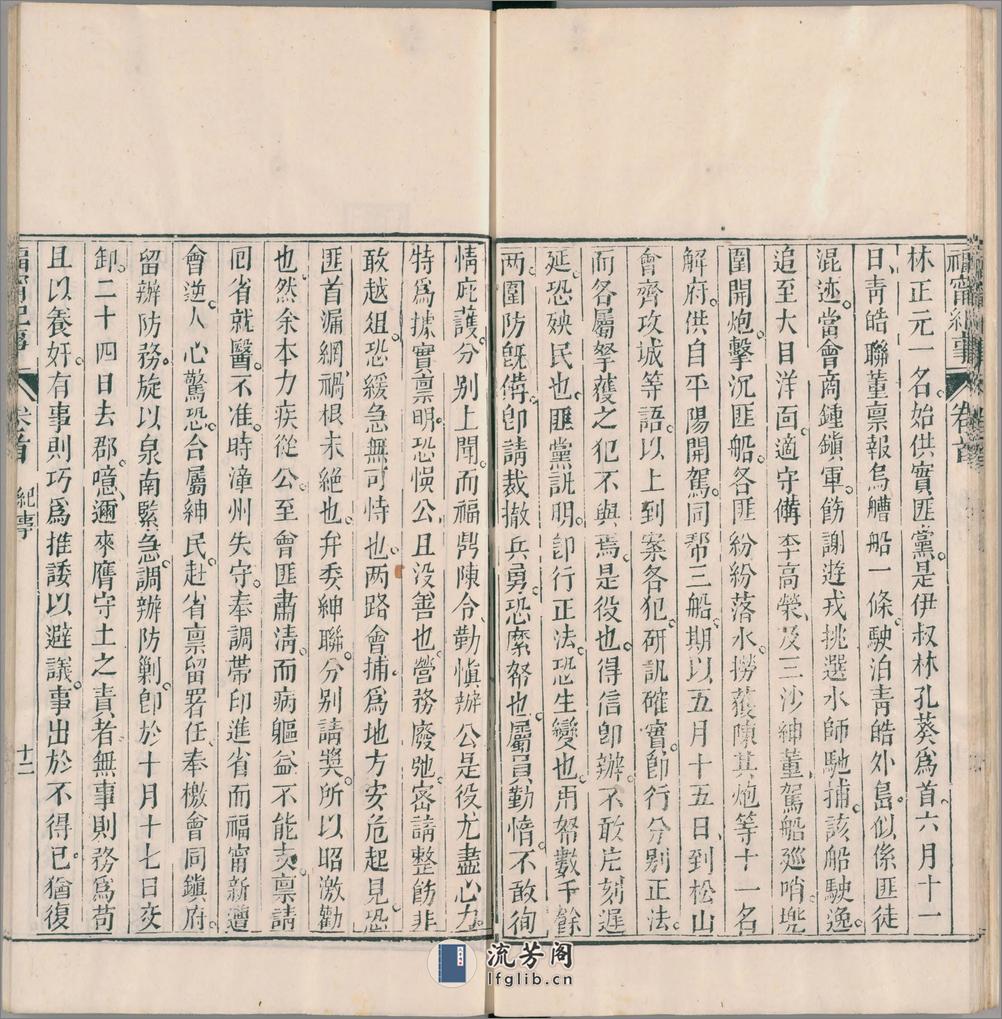 福寧紀事 卷首
林正元一名始供實匪黨是伊叔林孔葵為首六月十一
日青皓聯董稟報烏艚船一條駛泊青皓外島似係匪徒
混迹當會商鍾鎮軍飭謝遊戎挑選水師馳捕該船駛逸
追至大目洋面適守備李高榮及三沙紳董駕船廵哨兜
圍開炮擊沉匪船各匪紛紛落水撈獲陳其炮等十一名
解府供自平陽開駕同帮三船期以五月十五日到松山
會齊攻誠等語以上到案各犯研訊確實卽行分别正法
而各屬拏獲之犯不與焉是役也得信卽辦不敢片刻遲
延恐殃民也匪黨訊明卽行正法恐生變也用帑數千餘
两圍防旣備卽請裁撤兵勇恐縻帑也屬員勤惰不敢徇
情庇護分别上聞而福鼎陳令勤愼辦公是役尤盡心力
特為據實稟明恐悞公且没善也營務廢弛宻請整飭非
敢越俎恐緩急無可恃也两路會捕為地方安危起見恐
匪首漏網禍根未絕也弁委紳聯分别請奬所以昭激勸
也然余本力疾從公至會匪肅淸而病軀益不能支稟請
囘省就醫不准時漳州失守奉調帶印進省而福甯新遭
會逆人心驚恐台屬紳民赴省稟留署任奉檄會同鎮府
留辦防務旋以泉南緊急調辦防剿卽於十月十七日交
卸二十四日去郡噫邇來膺守土之責者無事則務為苟
且以養奸有事則巧為推諉以避議事出於不得已猶復
福甯紀事 卷首 紀事 十二
流芳阁
lfglib.cn